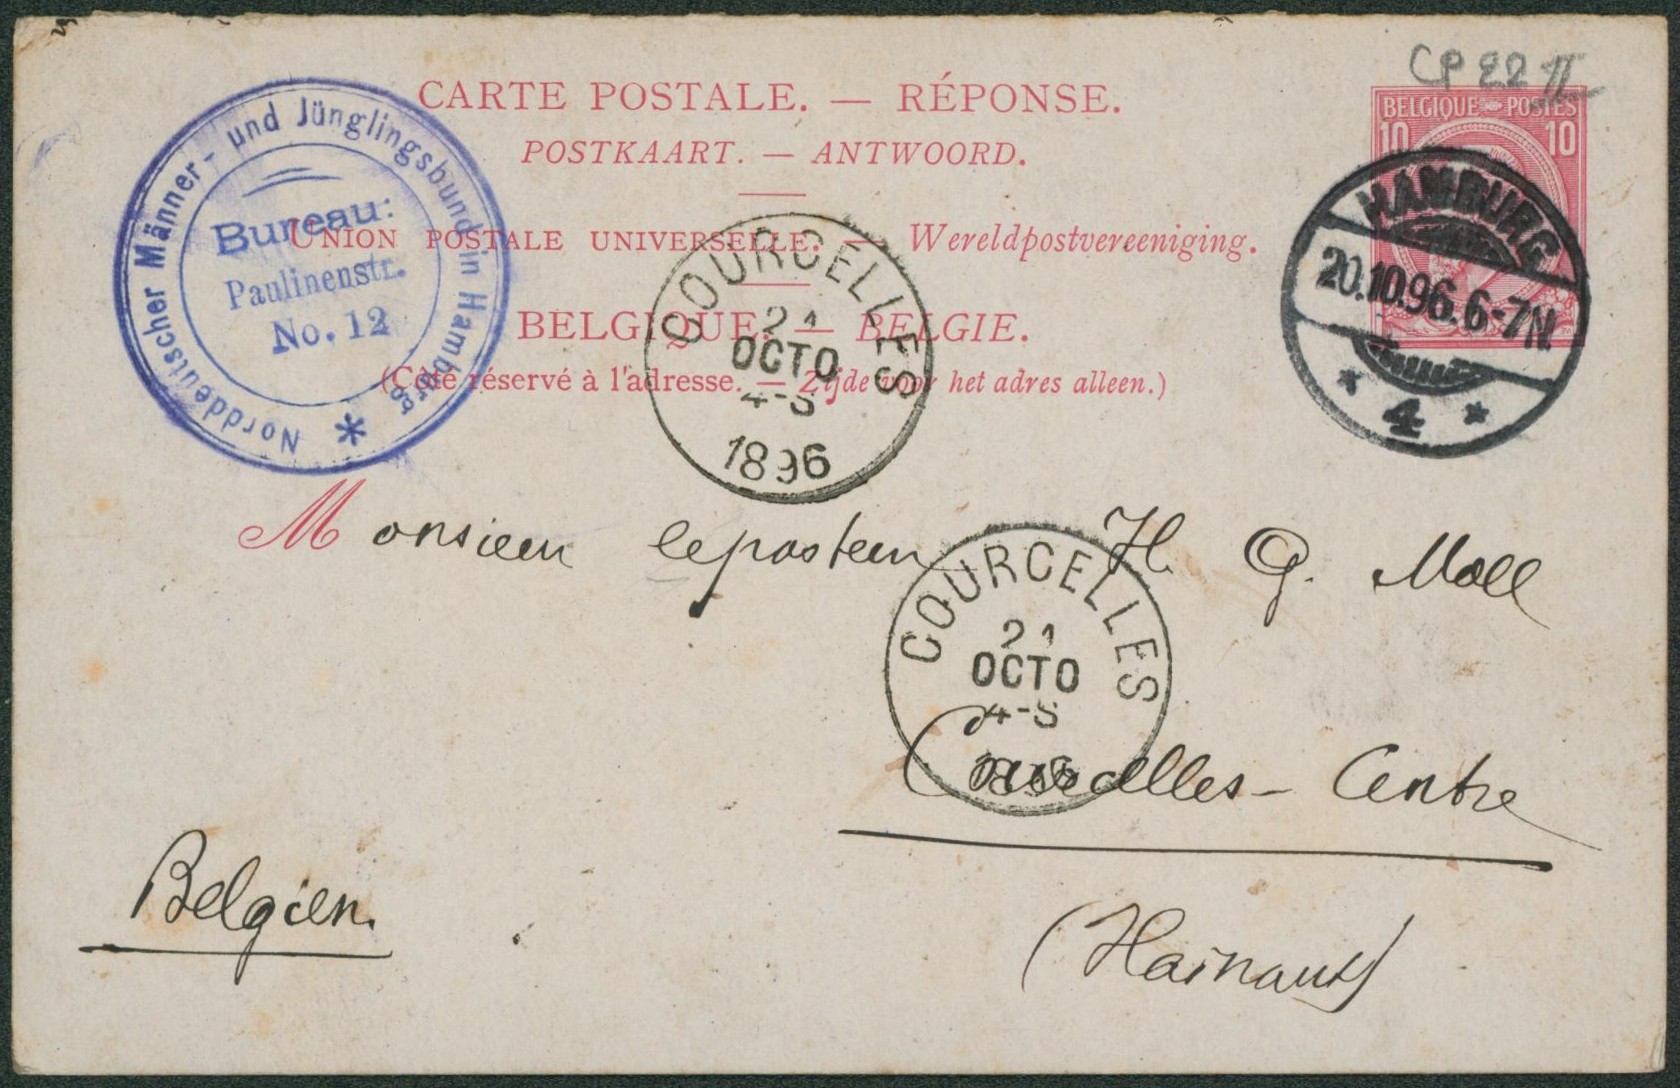 CP 22 II
CARTE POSTALE. — RÉPONSE.
POSTKAART. — ANTWOORD.
UNION POSTALE UNIVERSELLE. — Wereldpostvereeniging.
BELGIQUE. — BELGIE.
(Côté réservé à l'adresse. — Zijde voor het adres alleen.)
BELGIQUE POSTES
10 10
HAMBURG
20.10.96.6-7N.
* 4 *
Norddeutscher Männer- und Jünglingsbund in Hamburg *
Bureau:
Paulinenstr.
No. 12
COURCELLES
21
OCTO
4-S
1896
Monsieur le pasteur H. G. Moll
COURCELLES
21
OCTO
4-S
1896
Courcelles - Centre
Belgien.
(Hainaut)